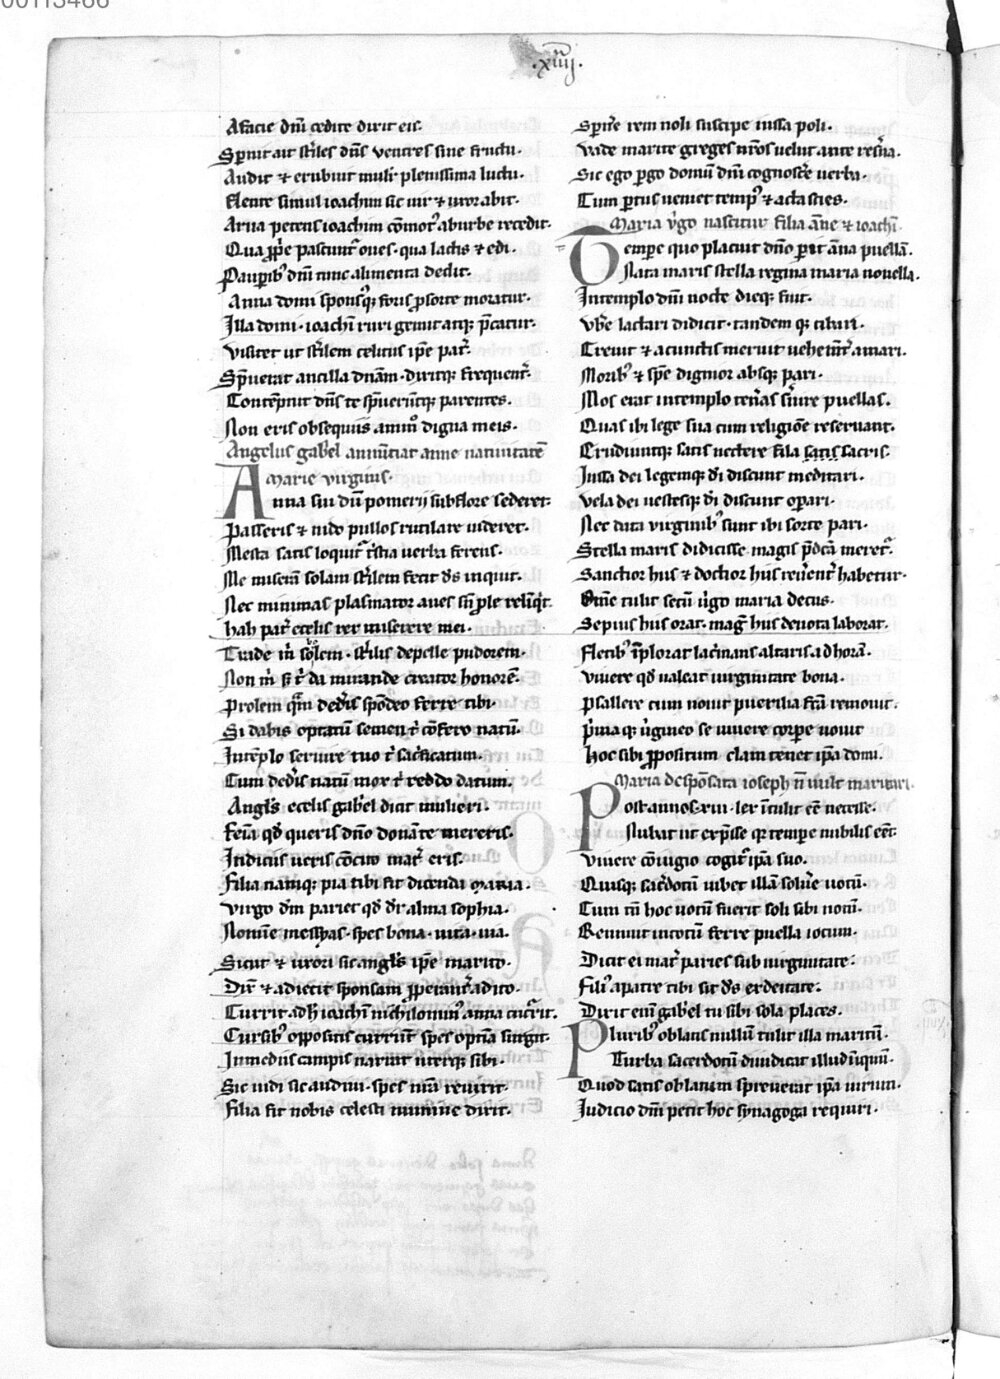 00113466
.xiiij.
A facie dn̄i cedite dixit eis.
Sp̄nit ait st̄iles dn̄s ventres sine fructu.
Audit & erubuit muli᷑ plenissima luctu.
Flente simul ioachim sic uir & uxor abit.
Arua petens ioachim cōmotꝰ ab urbe recedit.
Qua ꝓp̄e pascunt᷑ oues. qua lactis & edi.
Paup̄ibꝰ dn̄m tunc alimenta dedit.
Anna domi sponsꝰq; foris ꝓ sorte moratur.
Illa domi. ioachī ruri gemit atq; p̄catur.
Visitet ut st̄ilem celitus ip̄e pat᷑.
Sp̄uerat ancilla dn̄am. dixitq; frequent᷑.
Contēpnit dn̄s te sp̄uerūtq; parentes.
Non eris obsequiis ammō digna meis.
Angelus gab̄el annūciat anne natiuitatē
marie virginis.
Anna sui dū pomerij sub flore sederet.
Passeris & nido pullos rutilare uideret.
Mesta satis loquit᷑ t̄stia uerba ferens.
Me miserā solam st̄ilem fecit ds̄ inquit.
Nec minimas plasmator aues sn̄ ꝓle reliq̄t.
hah pat᷑ e celis rex miserere mei.
Trade m̄ sobolem. st̄ilis depelle pudorem.
Non m̄ sꝫ t̄ da mirande creator honorē.
Prolem q̄m dederis spōdeo ferre tibi.
Si dabis optatū semen t̄ cōfero natū.
In tēplo seruire tuo t̄ sac̄ficatum.
Cum deder̄s natū mox t̄ reddo datum.
Angl̄s e celis gab̄el dicit mulieri.
Fēia qd̄ queris dn̄o donāte mereris.
Indiciis ueris cōcito mat᷑ eris.
Filia namq; pia tibi fit dicenda maria.
Virgo dm̄ pariet qd̄ dr̄ alma sophia.
Nomine messyas. spes bona. uita. uia.
Sicut & uxori sic angl̄s ip̄e marito.
Dix̄ & adiecit sponsam ꝓperant᷑ adito.
Currit adh̄ ioachī nichilominꝰ anna cucrīt.
Cursibꝰ oppositis currūt spes optīa surgit.
In mediis campis narrat uterq; sibi.
Sic uidi sic audiui. spes nr̄a reuixit.
Filia fit nobis celesti numine dixit.
Spn̄e rem noli suscipe iussa poli.
Vade marite greges nr̄os uelut ante reser̄ua.
Sic ego ꝑgo domū dn̄i cognosc̄e uerba.
Tum ꝑtus ueniet tempꝰ & acta scies.
Maria v̄go nascitur filia āne & ioachī.
Tempe quo placuit dn̄o pep̄it āna puellā.
Nata maris stella regina maria nouella.
In templo dn̄i nocte dieq; fuit.
Vb̄e lactari didicit. tandem q; cibari.
Creuit & a cunctis meruit uehemt᷑ amari.
Moribꝰ & spē dignior absq; pari.
Mos erat in templo ten̄as s̄uire puellas.
Quas ibi lege sua cum religiōe reseruant.
Erudiuntq; satis nectere fila sacris.
Iussa dei legemq; di discunt meditari.
Vela dei uestesq; di discunt opari.
Nec data virginibꝰ sunt ibi sorte pari.
Stella maris didicisse magis p̄dc̄a meret᷑.
Sanctior hiis & doctior hiis reuēent᷑ habetur.
Om̄e tulit secū ūgo maria decus.
Sepius hiis orat. maḡ hiis deuota laborat.
Fletibꝰ īplorat lac̄mans altaris ad horā.
Viuere qd̄ ualeat uirginitate bona.
Psallere cum nouit puerilia fc̄a remouit.
P̄maq; ūgineo se uiuere corpe uouit
Hoc sibi ꝓpositum clam tenet ip̄a domi.
Maria despōsata ioseph n̄ uult maritari.
Post annos. xiii. lex ītulit eē necesse.
Nubat ut exp̄sse q; tempe nubilis eēt.
Viuere cōiugio cogit᷑ ip̄a suo.
Quisq; sac̄dotū iubet illā solūe uotū.
Cum tn̄ hoc uotū fuerit soli sibi notū.
Rennuit in totū ferre puella iocum.
Dicit ei mat᷑ paries sub uirginitate.
Filiꝰ a patre tibi sit ds̄ ex deitate.
Dixit eni gab̄el tu sibi sola places.
Pluribꝰ oblatis nullū tulit illa maritū.
Turba sacerdotū diiudicat illud iniquū.
Quod satis oblatum spreuerat ip̄a uirum.
Iudicio dn̄i petit hoc synagoga requiri.